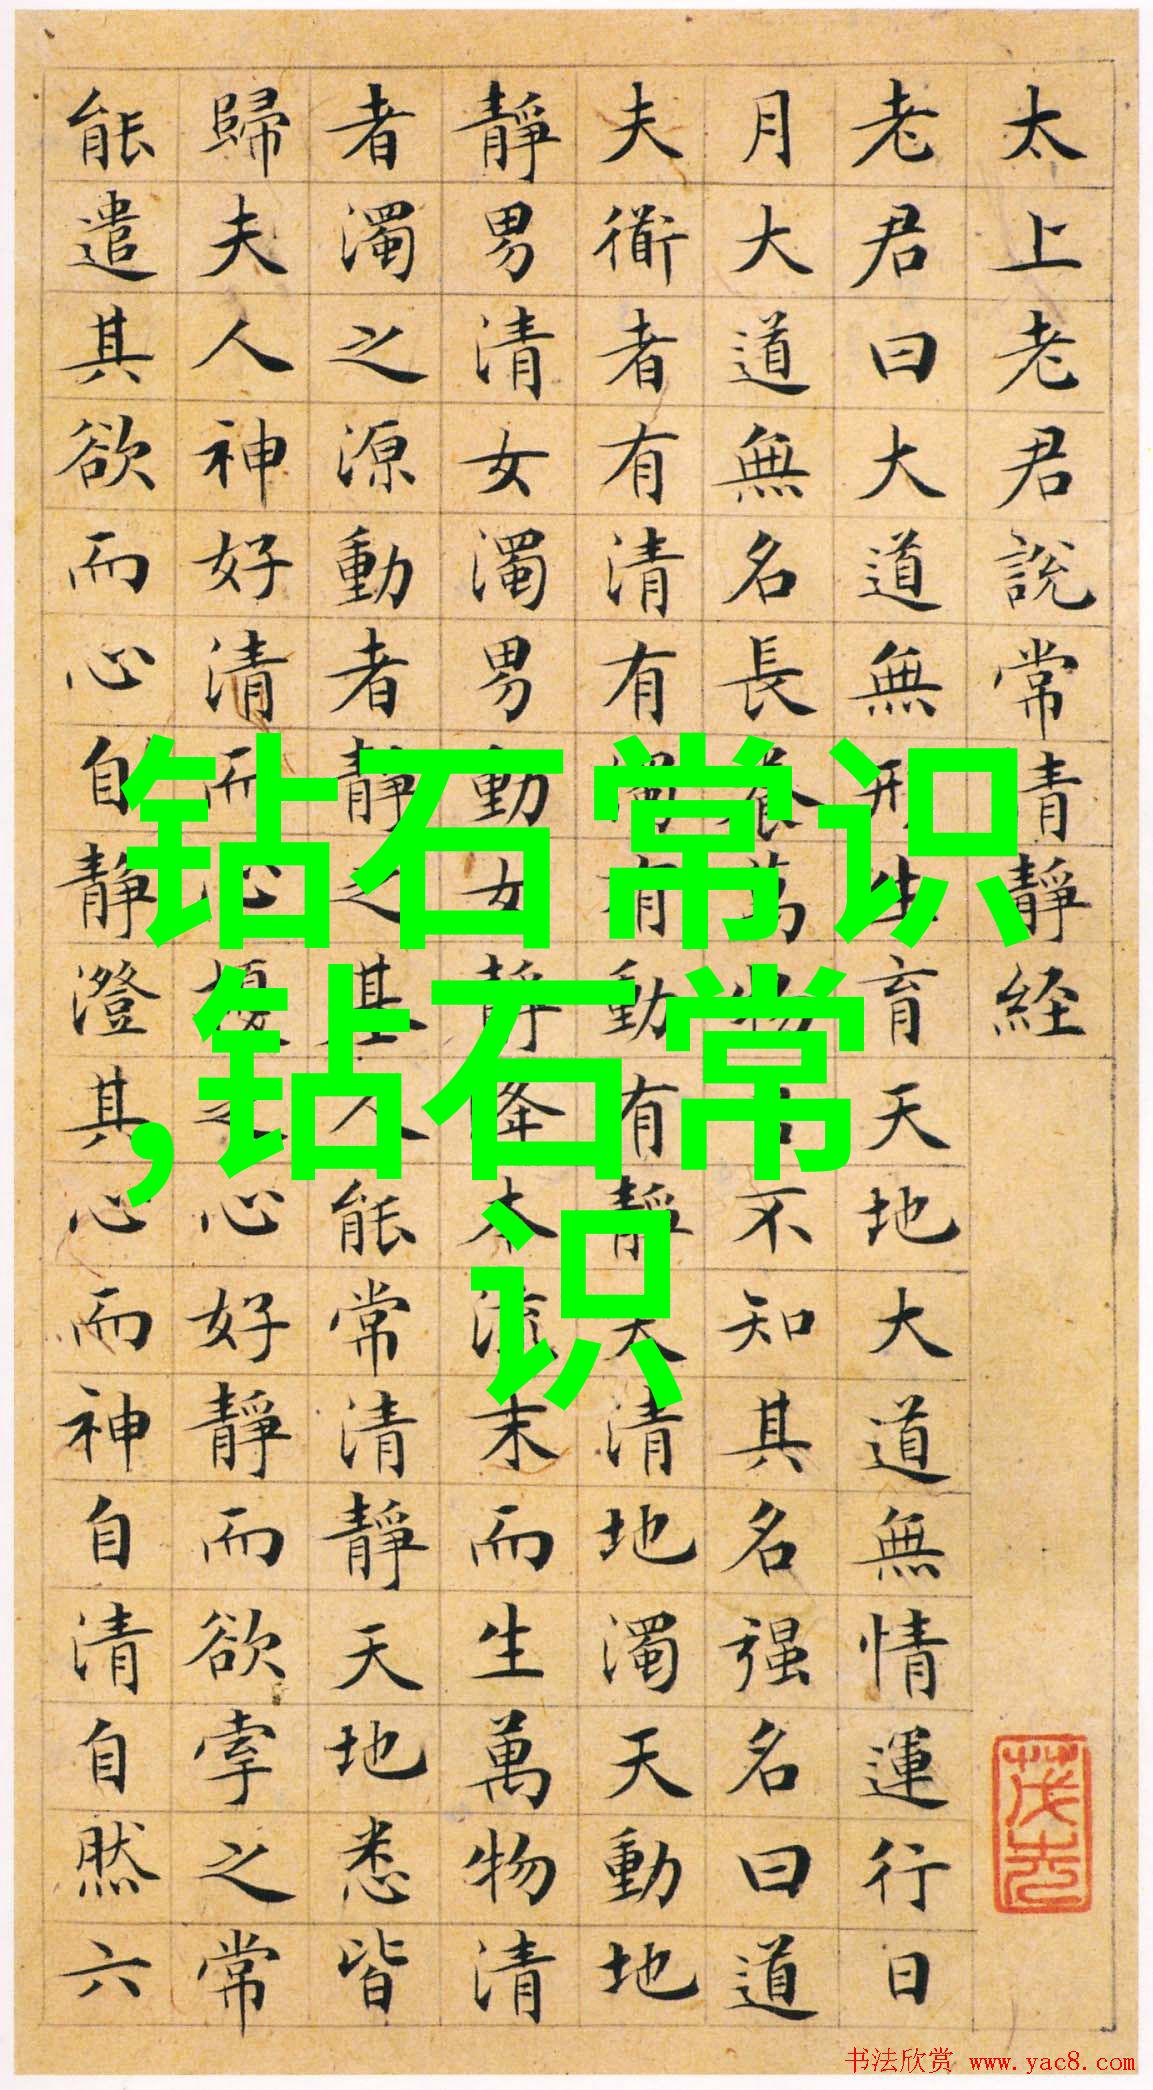 太上老君說常清靜経
老君曰大道無形生育天地大道無情運行日
月大道無名長養萬物吾不知其名强名曰道
夫衜者有清有濁有動有靜天清地濁天動地
靜男清女濁男動女靜降本流末而生萬物清
者濁之源動者靜之基人能常清靜天地悉皆
歸夫人神好清而心擾之心好靜而欲牽之常
能遣其欲而心自靜澄其心而神自清自然六
钻石常识
,钻石常
识
书法欣赏 www.yac8.com